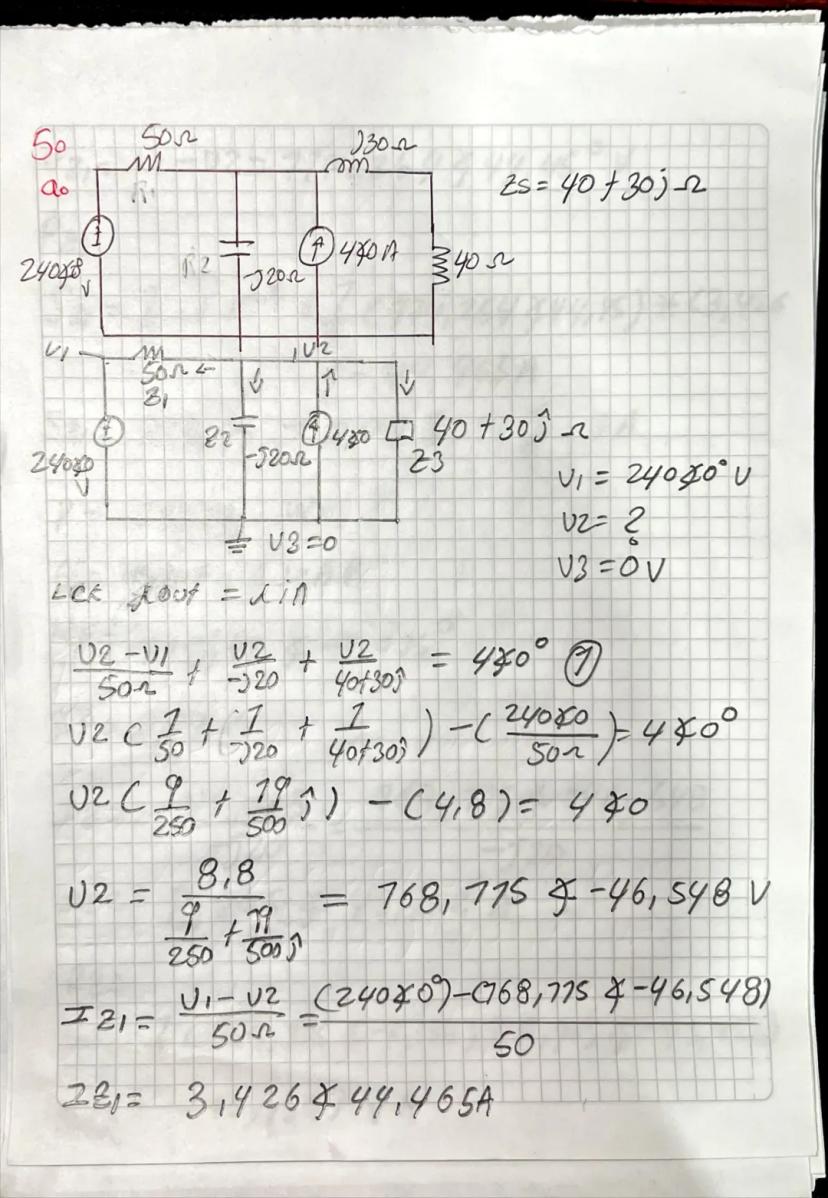 5.
a.
50Ω
j30Ω
R1
Zs = 40 + 30j Ω
240∡0
V
R2
-j20Ω
4∡0 A
40 Ω
V1
50Ω ←
Z1
V2
240∡0
V
Z2
-j20Ω
4∡0
40 + 30j Ω
Z3
V1 = 240∡0° V
V2 = ?
V3 = 0 V
V3 = 0
LCK iout = iin
(V2 - V1)/50Ω + V2/-j20 + V2/(40+30j) = 4∡0° ①
V2 (1/50 + 1/-j20 + 1/(40+30j)) - (240∡0/50Ω) = 4∡0°
V2 (9/250 + 19/500 j) - (4,8) = 4∡0
V2 = 8,8/(9/250 + 19/500 j) = 168,115 ∡ -46,548 V
IZ1 = (V1 - V2)/50Ω = ((240∡0°) - (168,115 ∡ -46,548))/50
IZ1 = 3,426 ∡ 44,465A